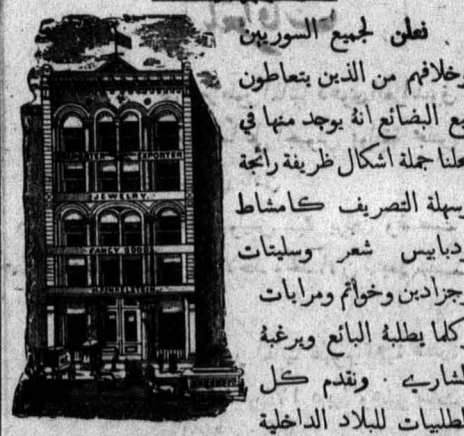 نعلن لجميع السوريين
وخلافهم من الذين يتعاطون
بيع البضائع انهُ يوجد منها في
محلنا جملة اشكال ظريفة رائجة
وسهلة التصريف كامشاط
ودبابيس شعر وسليتات
وجزادين وخواتم ومرايات
وكلما يطلبهُ البائع ويرغبهُ
الشاري . ونقدم كل
الطلبيات للبلاد الداخلية
JEWELRY
FANCY GOODS